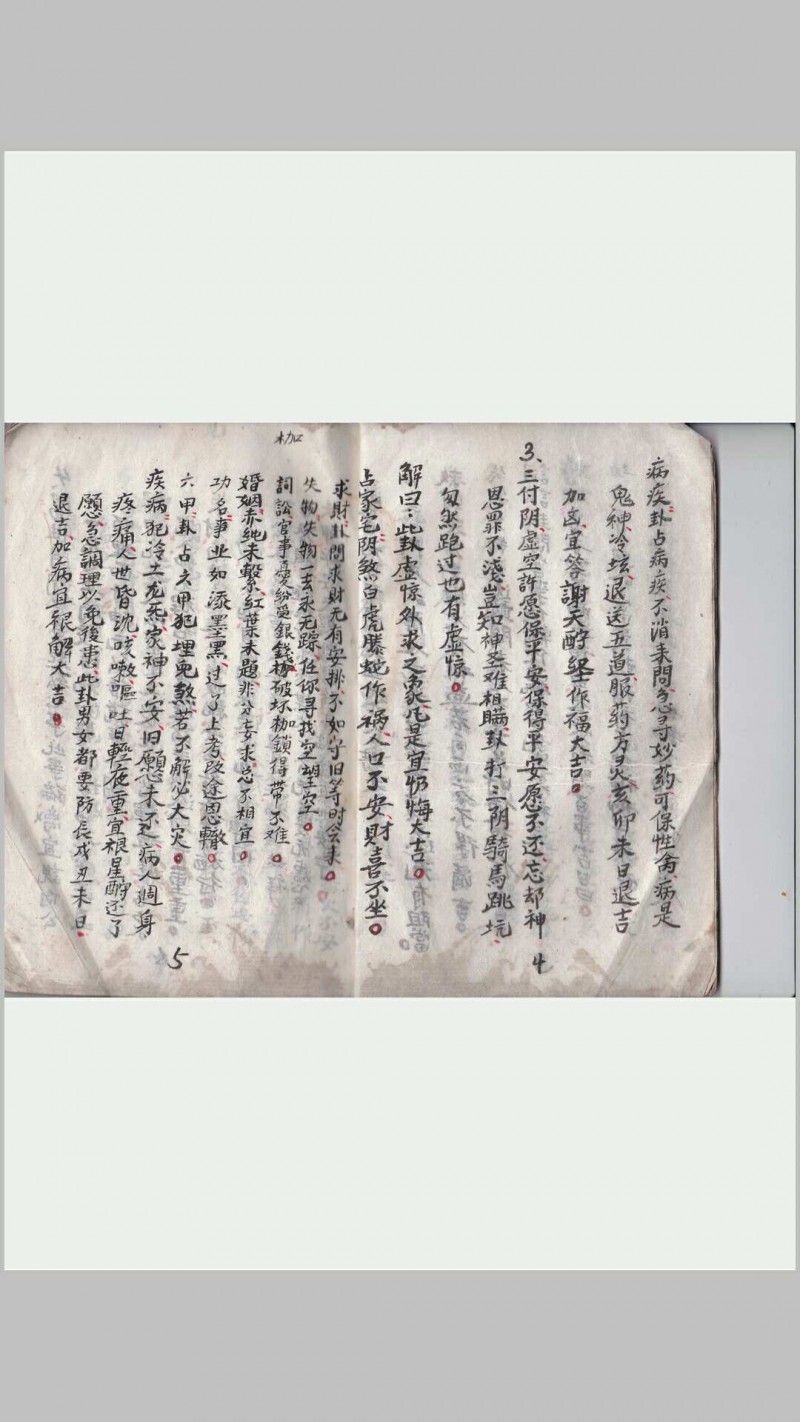 病疾卦占病疾不消来問急寻妙药可保性禽病是
鬼神冷坛退送五道服药方灵亥卯未日退吉
加凶宜答謝天酧坐作福大吉。
3、三付阴虚空許愿保平安保得平安愿不还忘却神
恩罪不淺豈知神圣难相瞒卦打三阴騎馬跳坑
忽然跑过也有虚惊。
4
解曰:此卦虚惊外求之象凡是宜忏悔大吉。
占家宅阴煞白虎滕蛇作祸人口不安財喜不坐。
求財卦問求财无有安排不如守旧等时会来。
失物失物一去永无踪任你寻找空望空。
枷
詞訟官事憂紛受銀錢破坏枷鎖得带不难。
婚姻赤绳未繫紅葉未題非分妄求总不相宜。
功名事业如漆墨黑过了上考改途恩轍。
六甲卦占六甲犯埋兔煞若不解必大灾。
5
疾病犯冷土龙炁家神不安旧願未还病人週身
疼痛人世昏沈咳嗽嘔吐日輕夜重宜根星酧还了
願急調理以免後患此卦男女都要防辰戌丑未日
退吉加病宜根解大吉。